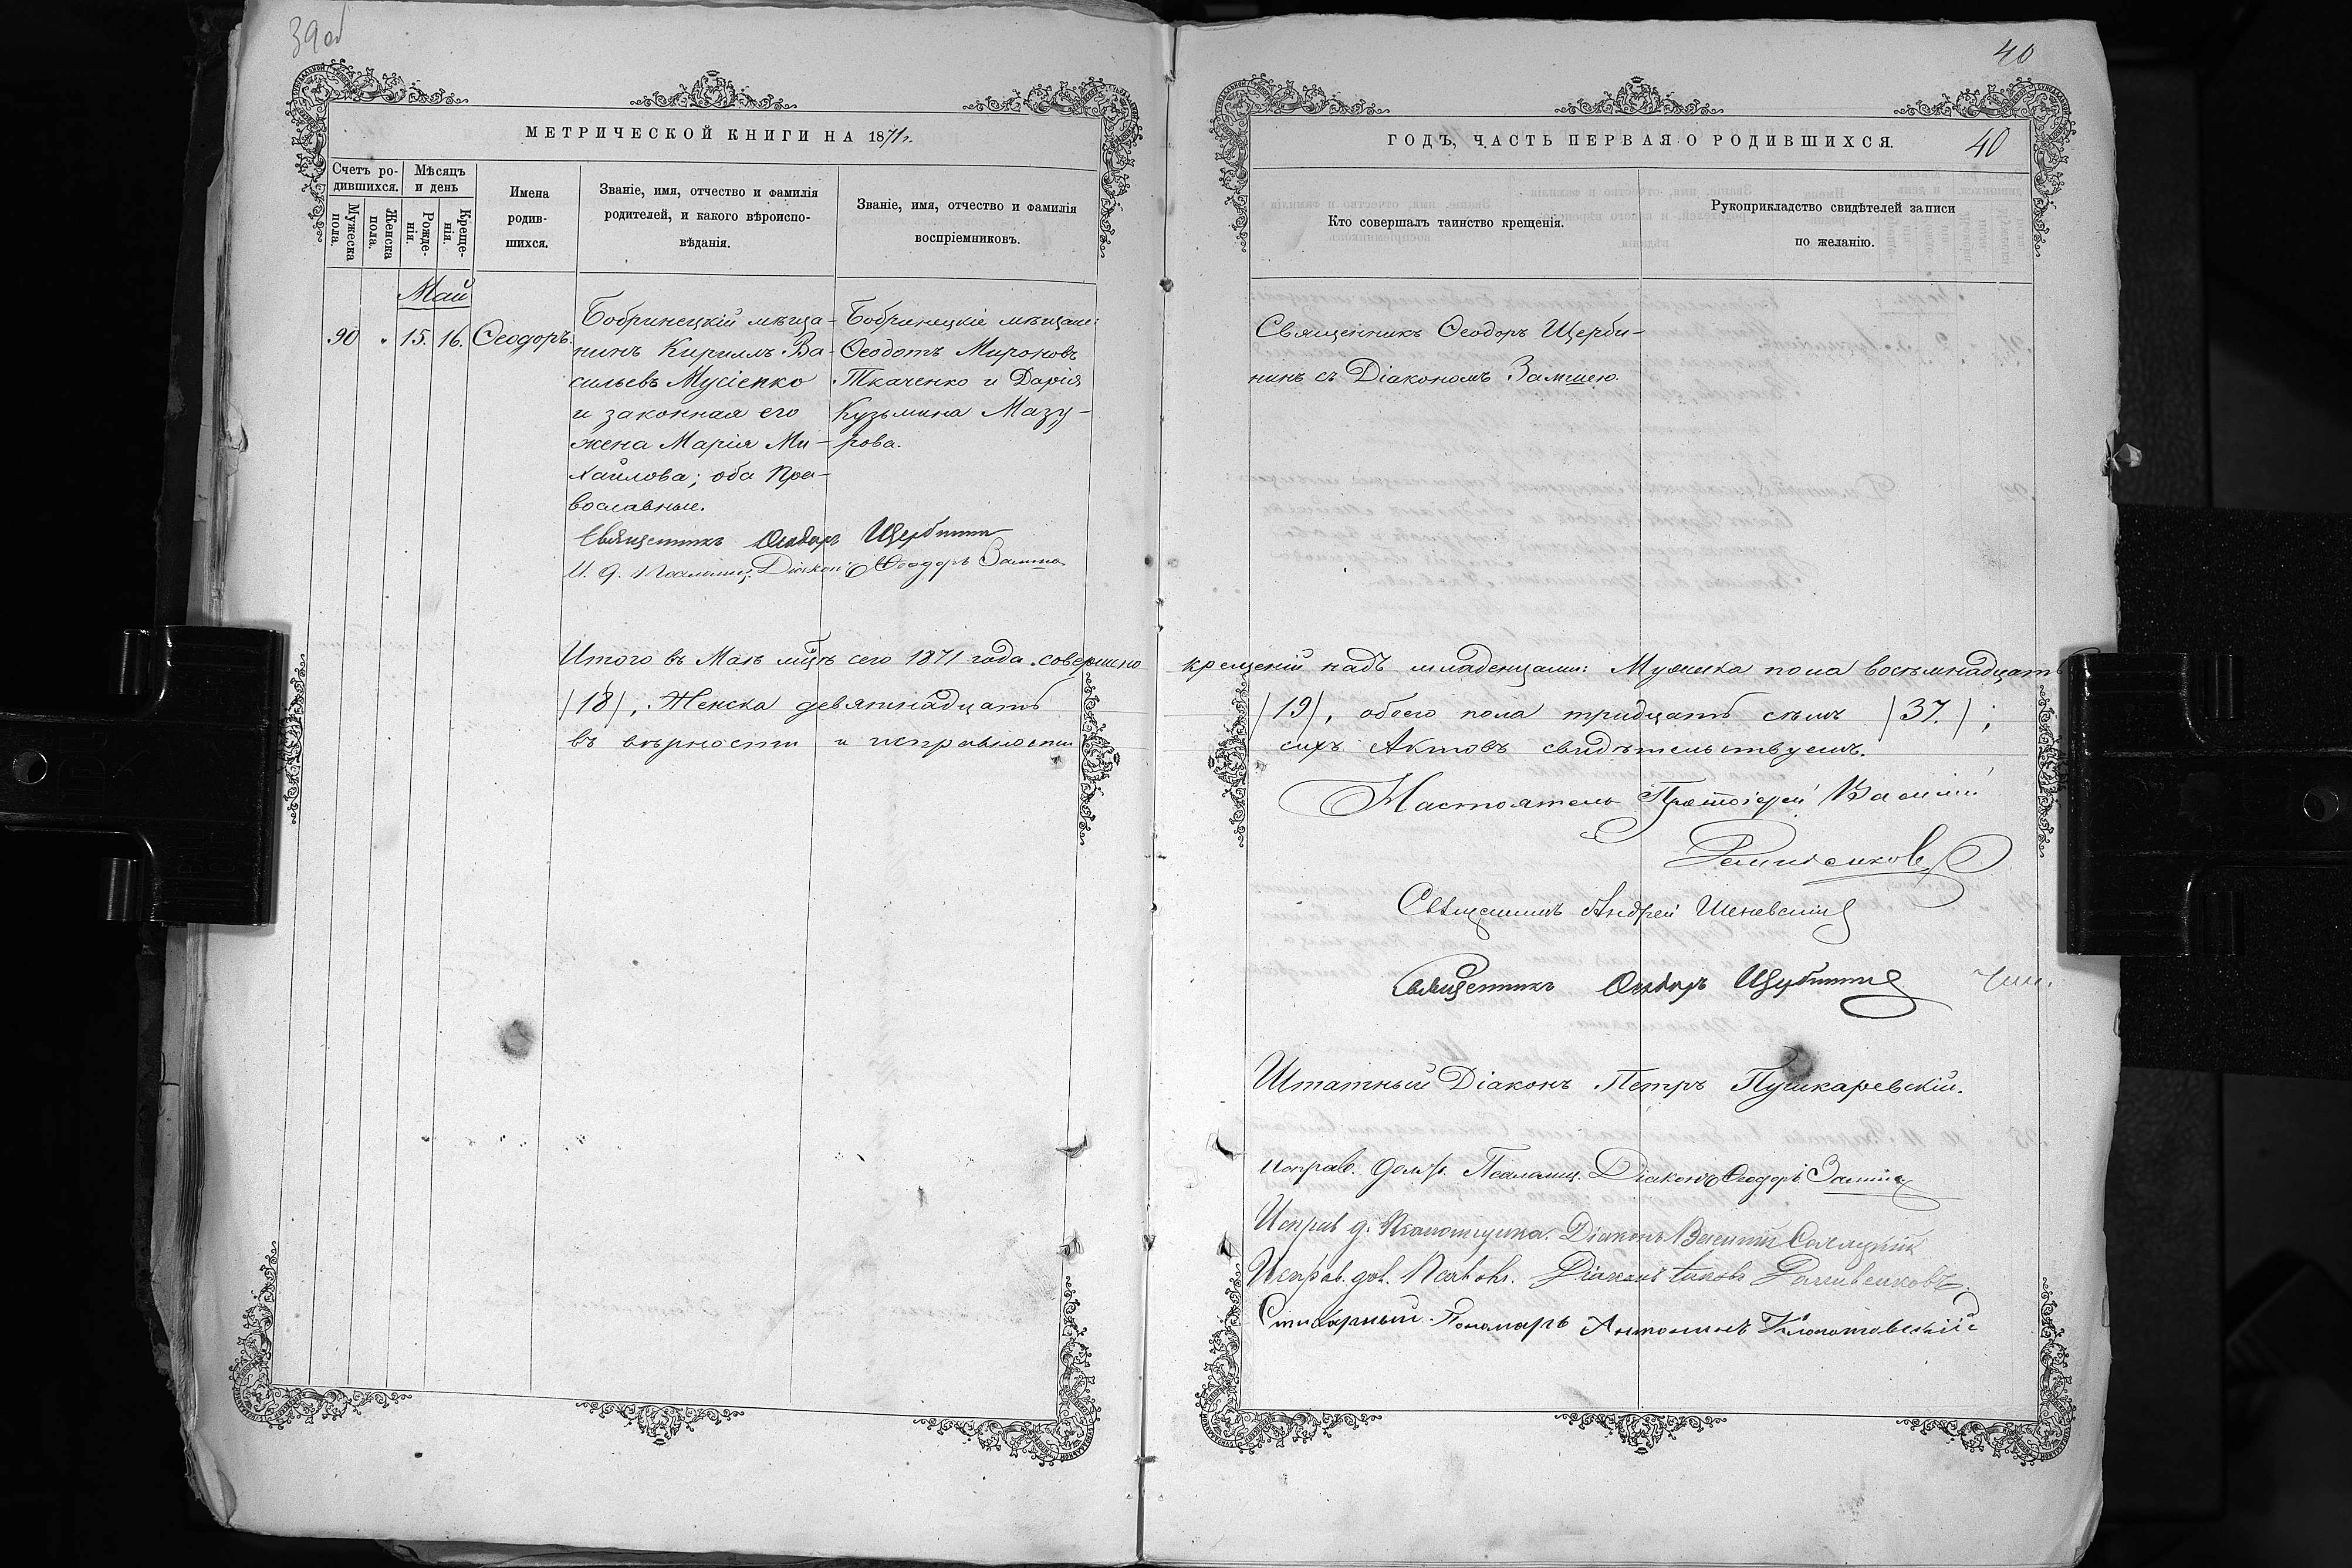 39об
МЕТРИЧЕСКОЙ КНИГИ НА 1871г.
Счетъ ро-
дившихся.
Мѣсяцъ
и день
Мужеска
пола.
Женска
пола.
Рожде-
нія.
Креще-
нія.
Имена
родив-
шихся.
Званіе, имя, отчество и фамилія
родителей, и какого вѣроиспо-
вѣданія.
Званіе, имя, отчество и фамилія
воспріемниковъ.
Май
90 " 15. 16. Ѳеодоръ.
Бобринецкій мѣща-
нинъ Кириллъ Ва-
сильевъ Мусіенко
и законная его
жена Марія Ми-
хайлова; оба Пра-
вославные.
Бобринецкіе мѣщане:
Ѳеодотъ Мироновъ
Ткаченко и Дарія
Кузьмина Мазу-
рова.
Священникъ Ѳеодоръ Щербининъ
И. д. Псаломщ. Діакон. Ѳеодоръ Замша
Итого въ Маѣ мцѣ сего 1871 года совершено
/18/, Женска девятнадцать
въ вѣрности и исправности
40
ГОДЪ, ЧАСТЬ ПЕРВАЯ О РОДИВШИХСЯ.
40
Кто совершалъ таинство крещенія.
Рукоприкладство свидѣтелей записи
по желанію.
Священникъ Ѳеодоръ Щерби-
нинъ съ Діакономъ Замшею.
крещеній надъ младенцами: Мужеска пола восемнадцать
/19/, обоего пола тридцать семь /37./;
сихъ Актовъ свидѣтельствуемъ.
Настоятель Протоіерей Василій
Священникъ Андрей
Священникъ Ѳеодоръ Щербининъ
Штатный Діаконъ Петръ Пушкаревскій.
Исправ. долж. Псаломщ. Діаконъ Ѳеодоръ Замша
Исправ д. Псаломщика Діаконъ Василій
Исправ. дол. Діаконъ Іаковъ
Стихарный Пономарь Антонинъ Клопотовскій